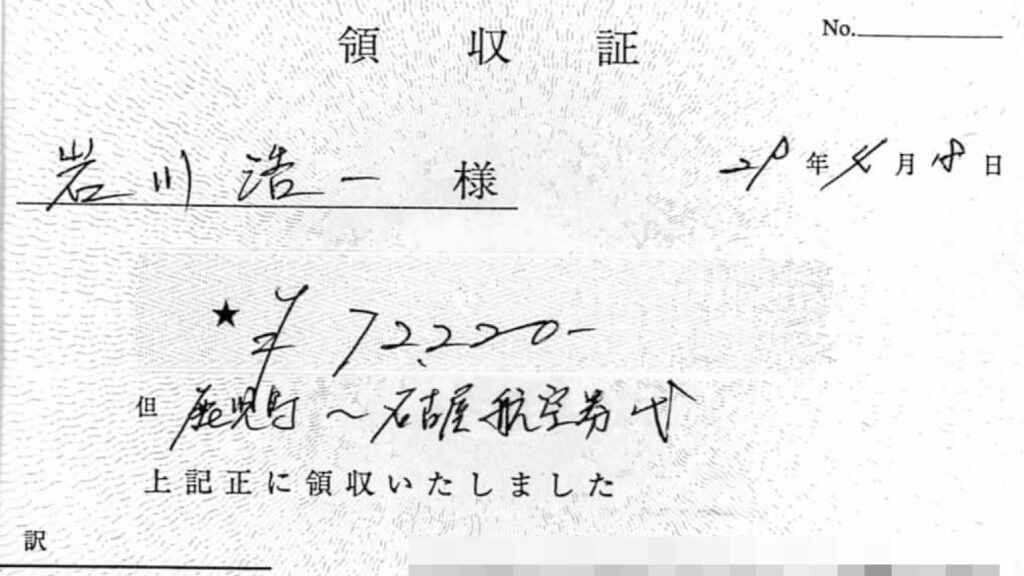 領収証
No.
岩川浩一 様
29年4月18日
★ ¥72,220-
但 鹿児島〜名古屋航空券代
上記正に領収いたしました
訳